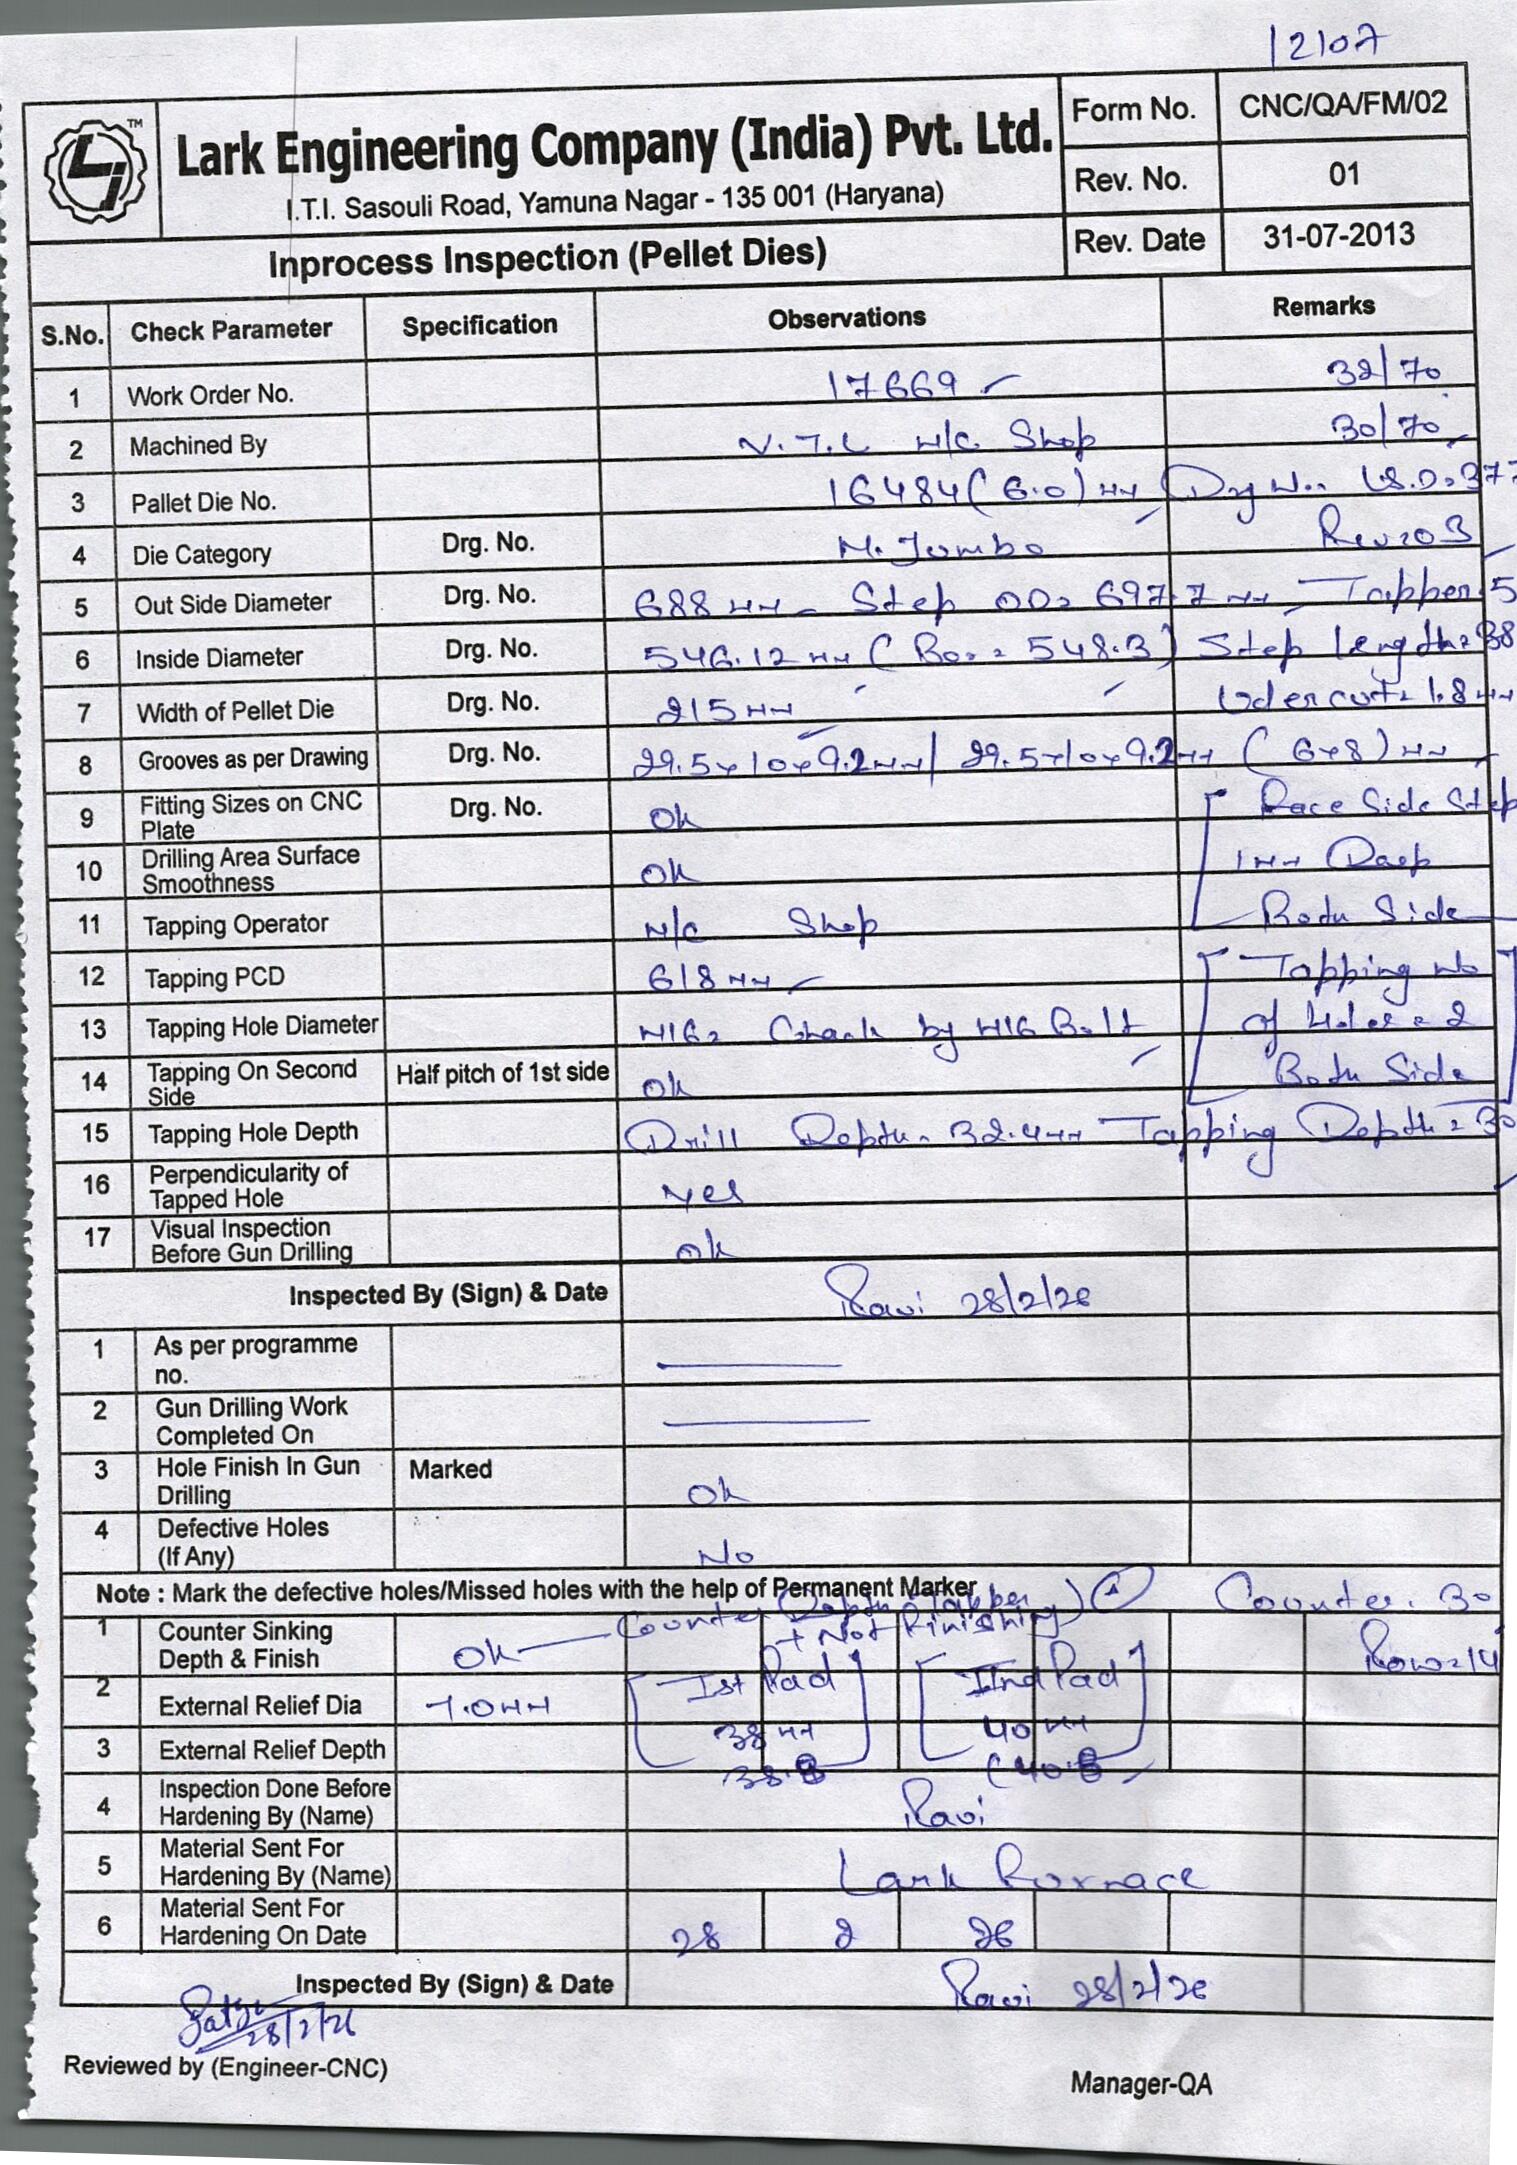 12107
TM
Lark Engineering Company (India) Pvt. Ltd.
I.T.I. Sasouli Road, Yamuna Nagar - 135 001 (Haryana)
Form No. CNC/QA/FM/02
Rev. No. 01
Inprocess Inspection (Pellet Dies)
Rev. Date 31-07-2013
S.No. Check Parameter Specification Observations Remarks
1 Work Order No. 17669 32/70
2 Machined By V.T.L M/C Shop 30/70
3 Pallet Die No. 16484 (6.0) mm
4 Die Category Drg. No. M. Jumbo Rev=03
5 Out Side Diameter Drg. No. 688 mm - Step OD= 697.7 mm Tapper 5
6 Inside Diameter Drg. No. 546.12 mm (Bor= 548.3) Step length=38
7 Width of Pellet Die Drg. No. 215 mm Udercut=1.8 mm
8 Grooves as per Drawing Drg. No. 29.5x10x9.2mm/ 29.5x10x9.2mm (6x8) mm
9 Fitting Sizes on CNC Plate Drg. No. Ok Race Side Step
10 Drilling Area Surface Smoothness Ok 1mm Daep
11 Tapping Operator M/C Shop Both Side
12 Tapping PCD 618 mm Tapping No
13 Tapping Hole Diameter M16= Chack by M16 Bolt of Holes=2
14 Tapping On Second Side Half pitch of 1st side Ok Both Side
15 Tapping Hole Depth Drill Depth= 32.4mm Tapping Depth=30
16 Perpendicularity of Tapped Hole yes
17 Visual Inspection Before Gun Drilling ok
Inspected By (Sign) & Date Ravi 28/2/26
1 As per programme no.
2 Gun Drilling Work Completed On
3 Hole Finish In Gun Drilling Marked Ok
4 Defective Holes (If Any) No
Note : Mark the defective holes/Missed holes with the help of Permanent Marker
Counter. 30
1 Counter Sinking Depth & Finish Ok Counter (Depth Tapper + Not Finishing) Row=14
2 External Relief Dia 7.0mm Ist Pad IInd Pad
3 External Relief Depth 38 mm 40 mm
38.8 (40.8
4 Inspection Done Before Hardening By (Name) Ravi
5 Material Sent For Hardening By (Name) Lark Furnace
6 Material Sent For Hardening On Date 28 2 26
Inspected By (Sign) & Date Ravi 28/2/26
28/2/26
Reviewed by (Engineer-CNC)
Manager-QA